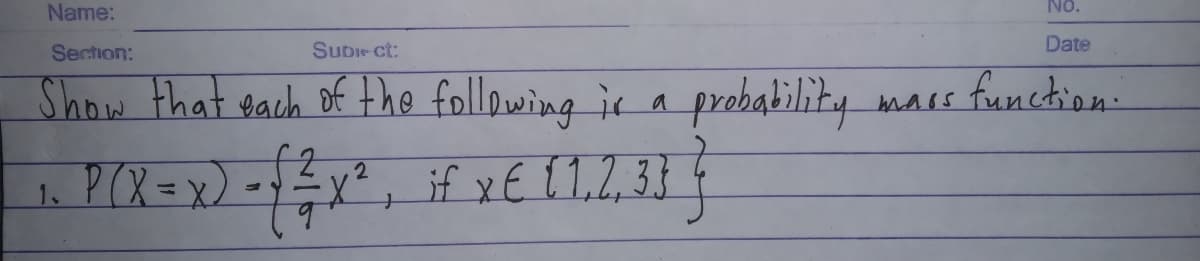 Name:
No.
Section:
Subject:
Date
Show that each of the following is a probability mass function.
1. P(X=x) = { 2/9 x², if x ∈ {1,2,3} }